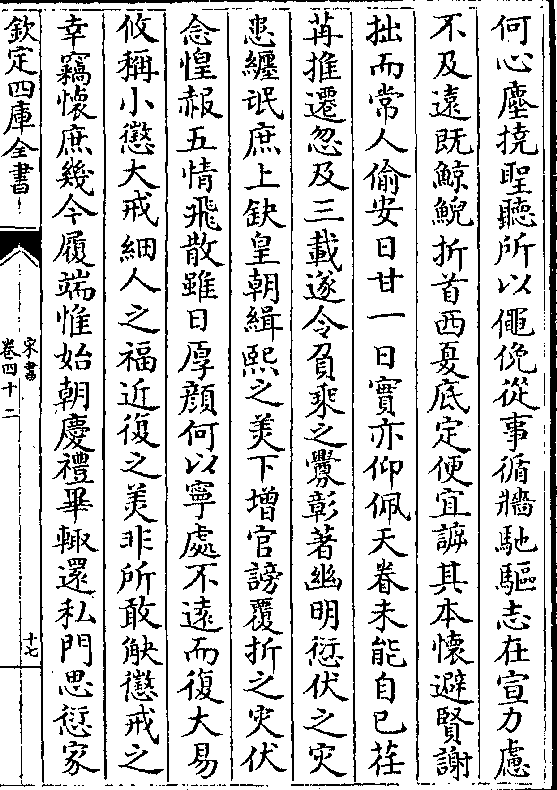 何心塵撓聖聽所以僶俛從事循牆馳驅志在宣力慮
不及遠既鯨鯢折首西夏底定便宜訴其本懷避賢謝
拙而常人偷安日甘一日實亦仰佩天眷未能自已荏
苒推遷忽及三載遂令負乘之釁彰著幽明愆伏之災
患纏氓庶上缺皇朝緝熙之美下增官謗覆折之災伏
念惶赧五情飛散雖曰厚顏何以寧處不遠而復大易
攸稱小懲大戒細人之福近復之美非所敢觖懲戒之
幸竊懷庶幾今履端惟始朝慶禮畢輒還私門思愆家
欽定四庫全書
宋書
卷四十二
十七